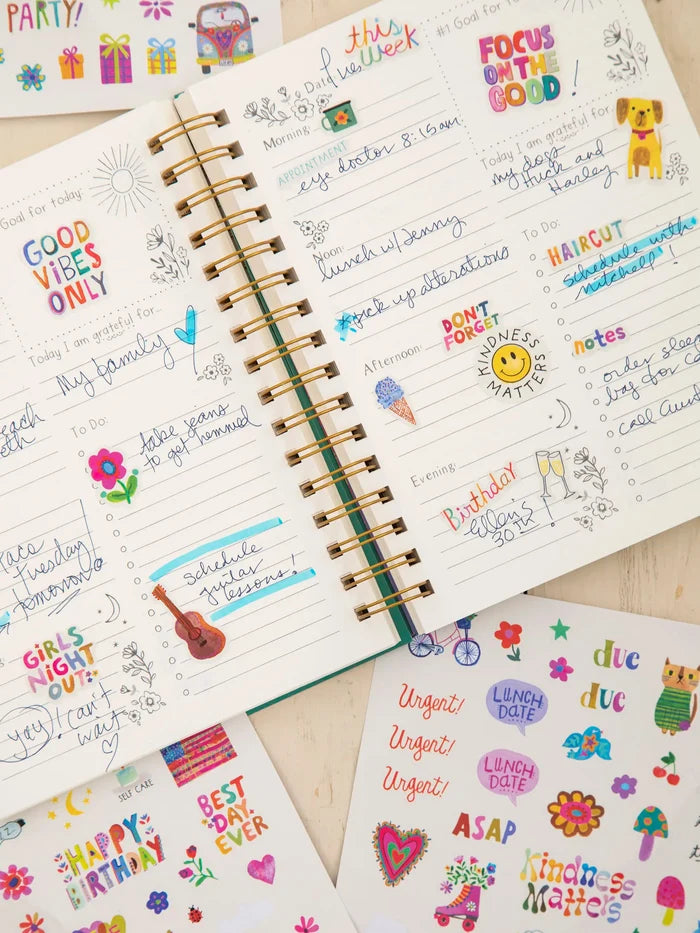 PARTY!
Goal for today:
GOOD
VIBES
ONLY
Today I am grateful for...
My family
To Do:
take jeans
to get hemmed
schedule
guitar
lessons!
Tuesday
tomorrow
GIRLS
NIGHT
OUT
yay! I can't
wait
this
week
Date:
Morning:
APPOINTMENT
eye doctor 8:15am
Noon:
lunch w/Jenny
pick up alterations
Afternoon:
DON'T
FORGET
KINDNESS
MATTERS
Evening:
Birthday
Ellen's
30th!
#1 Goal for
FOCUS
ON THE
GOOD!
Today I am grateful for...
my dogs
Huck and
Harley
To Do:
HAIRCUT
schedule with
mitchell!
notes
order
bag for
call
SELF CARE
HAPPY
BIRTHDAY
BEST
DAY
EVER
Urgent!
Urgent!
Urgent!
LUNCH
DATE
LUNCH
DATE
due
due
ASAP
Kindness
Matters